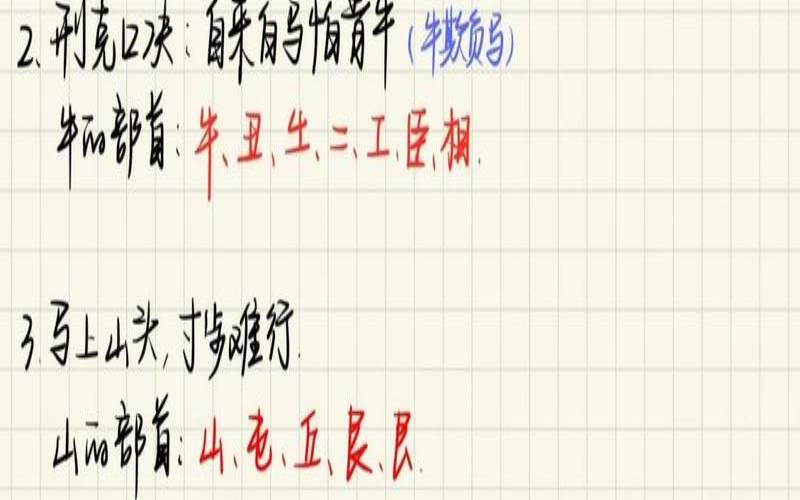 2、刑克口决：自来白马怕青牛（牛欺负马）
牛的部首：牛、丑、生、二、工、臣、相.
3.马上山头,寸步难行.
山的部首：山、屯、丘、良、艮.